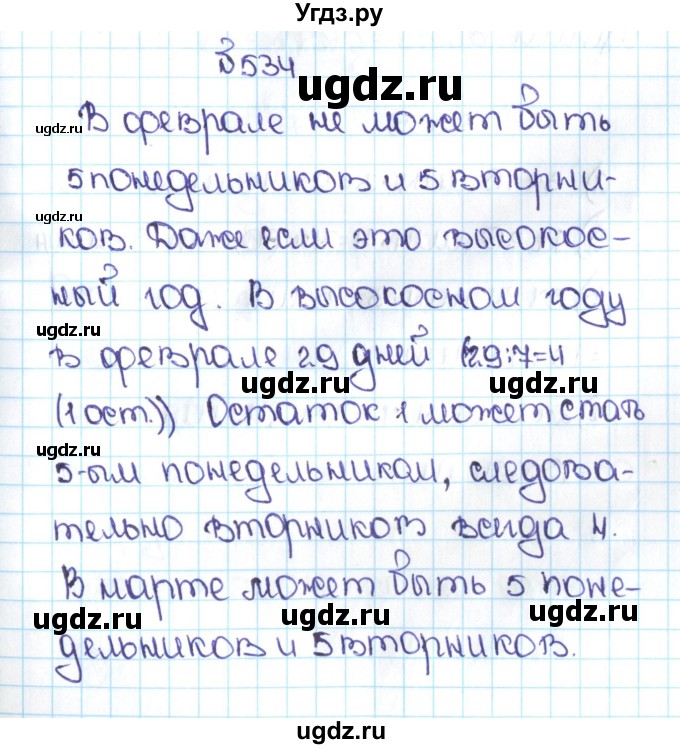 Угдз.ру
№534
ugdz.ru
ugdz.ru
В феврале не может быть
5 понедельников и 5 вторни-
ugdz.ru
ков. Даже если это высокос-
ный год. В высокосном году
ugdz.ru
в феврале 29 дней (29:7=4
ugdz.ru ugdz.ru
(1 ост.)) Остаток 1 может стать
ugdz.ru
5-ым понедельникам, следова-
тельно вторников всегда 4.
В марте может быть 5 поне-
ugdz.ru ugdz.ru ugdz.ru
дельников и 5 вторников.
ugdz.ru